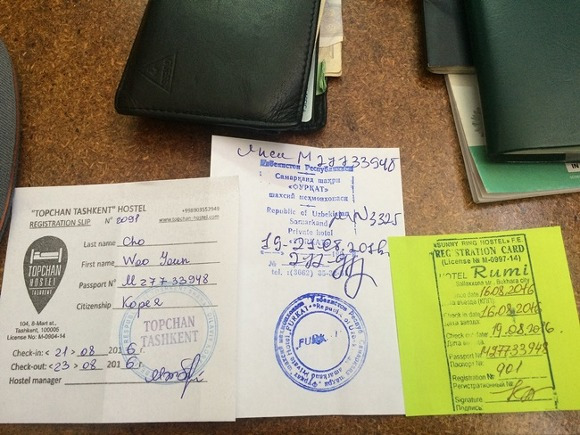 "TOPCHAN TASHKENT" HOSTEL
REGISTRATION SLIP N° 2091
+998903552948
www.topchan-hostel.com
TOPCHAN
HOSTEL
TASHKENT
Last name Cho
First name Woo Youn
Passport N° M 27733948
Citizenship Корея
104, 8-Mart st.,
Tashkent, 100005
License No: M-0904-14
TOPCHAN
TASHKENT
Check-in: <21> 08 2016 г.
Check-out: <23> 08 2016 г.
Hostel manager
M 27733948
Узбекистон Республикаси
Самарқанд шаҳри
«ФУРҚАТ»
шахсий меҳмонхонаси
Republic of Uzbekistan
Samarkand
Private hotel
N 3325
19-21.08.2016
"SUNNY RING HOSTEL" F.E.
REGISTRATION CARD
(License No M-0997-14)
HOTEL Rumi
Bukhara city
16.08.2016
Check
16.08.2016
Check out date
19.08.2016
Passport
M27733948
Паспорт №
Registration №
901
Регистрационный №
Signature
Подпись